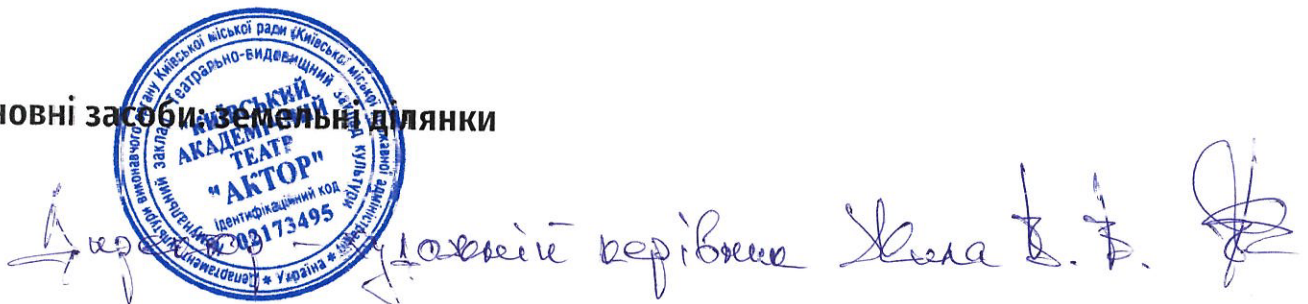 новні засоби: земельні ділянки
Департамент культури виконавчого органу Київської міської ради (Київської міської державної адміністрації) * Україна *
Комунальний заклад Театрально-видовищний заклад культури
"КИЇВСЬКИЙ
АКАДЕМІЧНИЙ
ТЕАТР
"АКТОР"
Ідентифікаційний код
02173495
Директор – художній керівник Жила В. В.